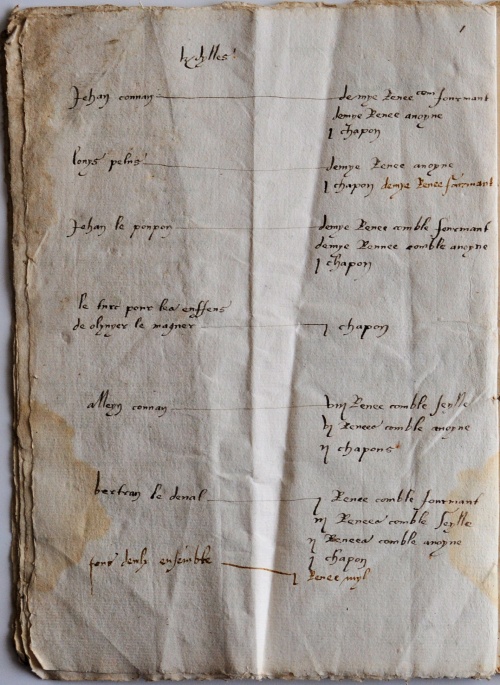 Jehan connan demye Renee com fourmant
demye Renee avoyne
j chapon
louys demye Renee avoyne
j chapon demye Renee fourmant
Jehan le ponpon demye Renee comble fourmant
demye Rennee comble avoyne
j chapon
le pour les enffens
de olyvyer le magner j chapon
allein connan Renee comble seylle
Renees comble avoyne
ij chapons
bertran le denal j Renee comble fourmant
iij Renees comble seylle
ij Renees comble avoyne
j chapon
ensemble j Renee